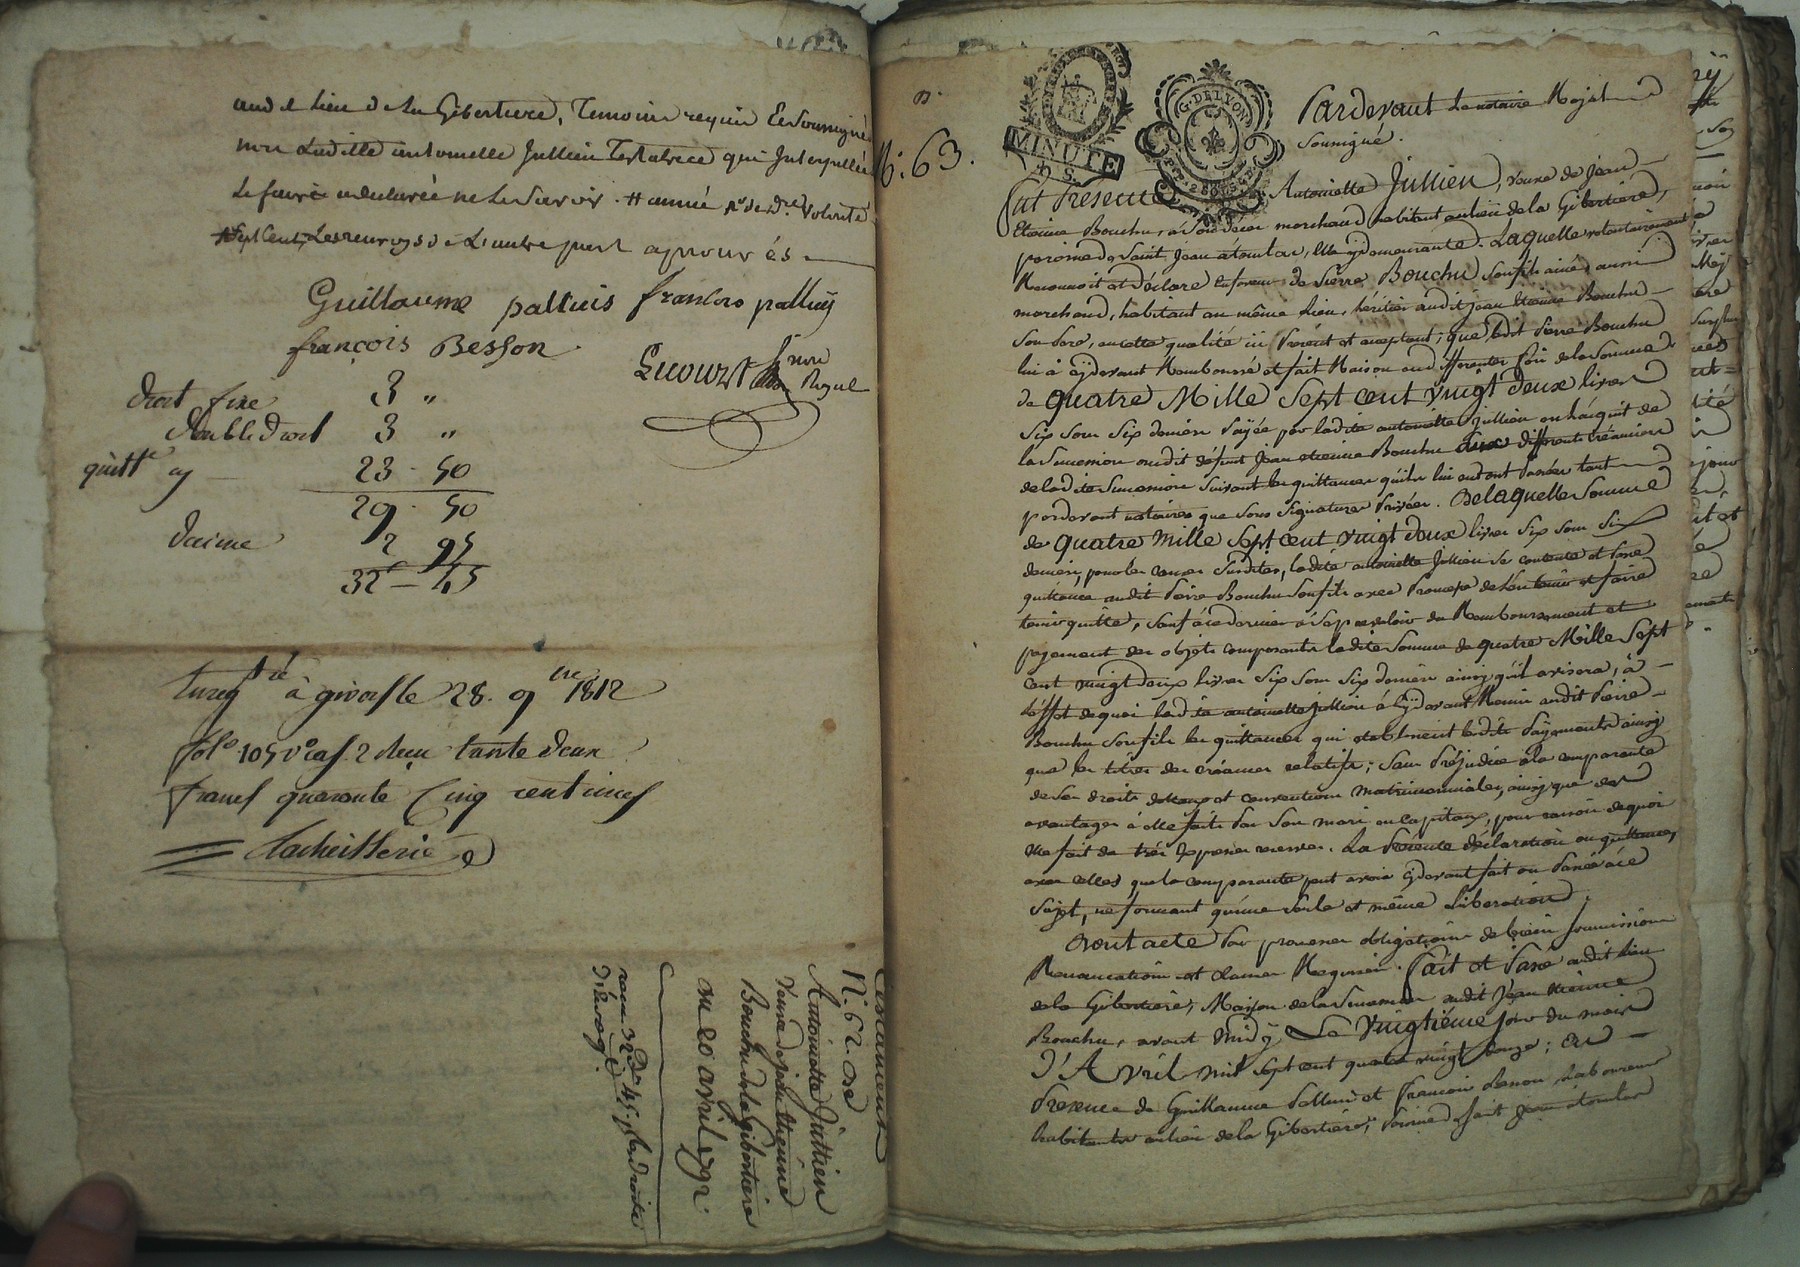 audit lieu de la Gibertiere, Temoins requis et soussignés
non ladite antoinette Jullien Testatrice qui Interpellée
de faire a declarée ne le savoir. # année pr de dre volonté
#sept cent, les renvoys de l'autre part aprouvés.
Guillaume palluis francois palluy
françois Besson
nore Royal
Droit fixe 3 "
double Droit 3 "
quitte 23 - 50
29 - 50
Décime 2 95
32f - 45
Enregtré à givors le 28. 9bre 1812
folo 105 vo cas. 2 reçu trente deux
francs quarante Cinq centimes
Testament
N.° 62. de
Antoinette Jullien
veuve de jean Etienne
Bouchu de la gibertiere
du 20 avril 1792.
N.° 63.
MINUTE
G. DE LYON
Pardevant le notaire Royal
soussigné.
Fut Présente Antoinette Jullien, veuve de Jean
Etienne Bouchu, à son décès marchand habitant au lieu de la Gibertière,
paroisse de Saint Jean à toulas, elle y demeurante. Laquelle volontairement
Reconnoit et déclare en faveur de Pierre Bouchu son fils ainé, aussi
marchand, habitant au même lieu, héritier audit jean Etienne Bouchu
son Pere, en cette qualité ici Présent et acceptant, que ledit Pierre Bouchu
lui à cÿdevant Remboursé et fait Raison en differentes fois de la somme
de quatre Mille Sept cent vingt deux livres
Six sous Six deniers Payée par ladite antoinette Jullien en l'acquit de
la Succession audit défunt Jean Etienne Bouchu aux différents créanciers
de ladite Succession Suivant les quittances qu'ils lui en ont Passées tant
pardevant notaires que sous signatures Privées. De laquelle Somme
de quatre mille Sept cent vingt deux livres Six sous Six
deniers, pour les causes Susdites, ladite antoinette Jullien se contente et Passe
quittance audit Pierre Bouchu son fils avec Promesse de l'en tenir et faire
tenir quitte, sauf à ce dernier à se prevaloir du Remboursement et
payement des objets composants ladite Somme de quatre Mille Sept
cent vingt deux livres Six sous Six deniers ainsy qu'il avisera, à
l'effet de quoi ladite antoinette Jullien à cÿdevant Remis audit Pierre
Bouchu son fils les quittances qui etablissent lesdits Payements ainsy
que les titres des créances relatifs; sans Préjudice à la comparante
de ses droits dotaux et conventions matrimoniales, ainsy que des
avantages à elle faits Par son mari en capitaux, pour raison de quoi
elle fait de très Expresses reserves. La Presente déclaration ou quittance,
avec celles que la comparante peut avoir cÿdevant fait ou Passé à ce
Sujet, ne formant qu'une Seule et même Liberation.
Dont acte Par promesses obligations de biens soumissions
Renonciations et clauses Requises. Fait et Passé audit lieu
de la Gibertière, Maison de la Succession audit Jean Etienne
Bouchu, avant Midÿ Le vingtième jour du mois
D'Avril mil Sept cent quatre vingt douze; en
Presence de Guillaume Palluis et Francois Besson, Laboureurs
habitants au lieu de la Gibertière, Paroisse de Saint Jean à toulas